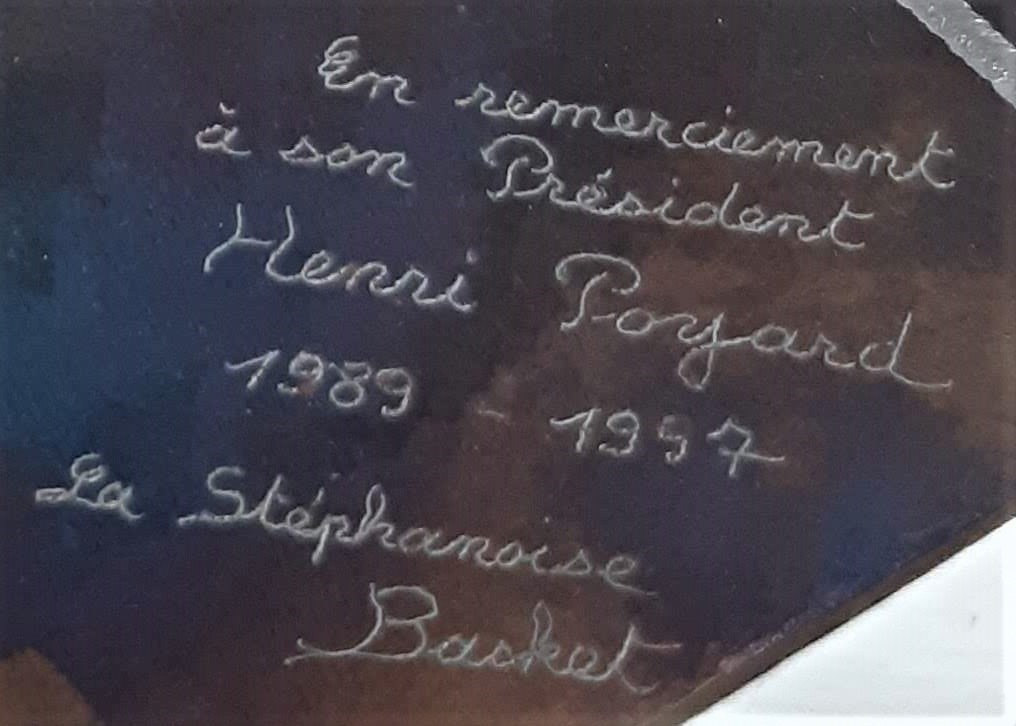 En remerciement
à son Président
Henri Poyard
1989 - 1997
La Stéphanoise
Basket